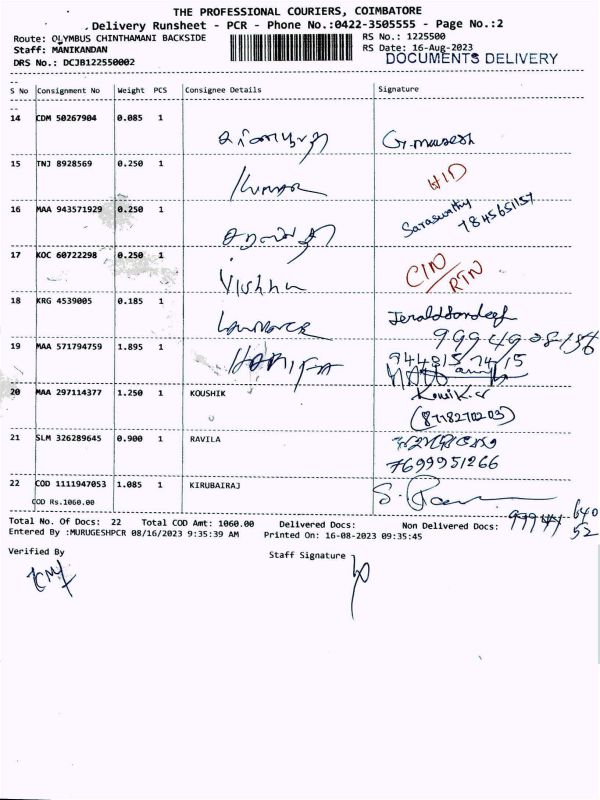 THE PROFESSIONAL COURIERS, COIMBATORE
Delivery Runsheet - PCR - Phone No.:0422-3505555 - Page No.:2
Route: OLYMBUS CHINTHAMANI BACKSIDE RS No.: 1225500
Staff: MANIKANDAN RS Date: 16-Aug-2023
DRS No.: DCJB122550002 DOCUMENTS DELIVERY
S No Consignment No Weight PCS Consignee Details Signature
14 CDM 50267904 0.085 1
15 TNJ 8928569 0.250 1 Kumar H/D
16 MAA 943571929 0.250 1 Saraswathy
7845651157
17 KOC 60722298 0.250 1 Vishnu C/N
RTN
18 KRG 4539005 0.185 1 Lawrance JeraldSandeep
19 MAA 571794759 1.895 1 HANIFA
20 MAA 297114377 1.250 1 KOUSHIK
(8778270203)
21 SLM 326289645 0.900 1 RAVILA
7699951266
22 COD 1111947053 1.085 1 KIRUBAIRAJ
COD Rs.1060.00
Total No. Of Docs: 22 Total COD Amt: 1060.00 Delivered Docs: Non Delivered Docs:
Entered By :MURUGESHPCR 08/16/2023 9:35:39 AM Printed On: 16-08-2023 09:35:45
Verified By Staff Signature